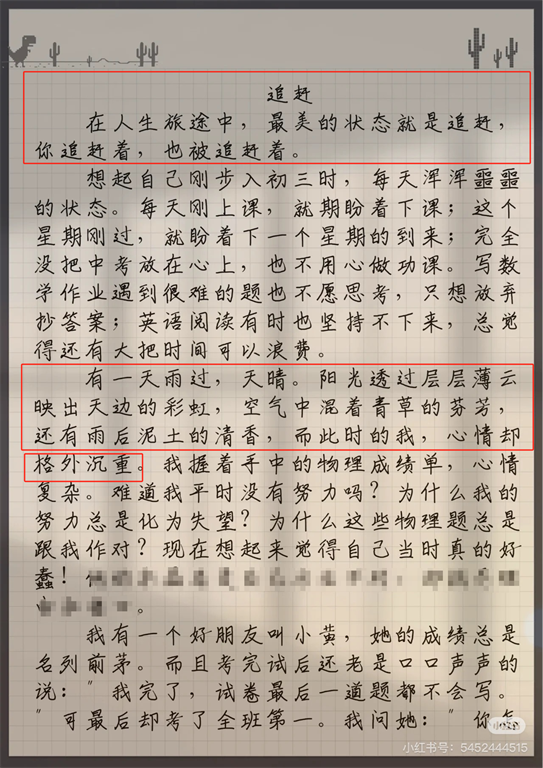 追赶
在人生旅途中，最美的状态就是追赶，
你追赶着，也被追赶着。
想起自己刚步入初三时，每天浑浑噩噩
的状态。每天刚上课，就期盼着下课；这个
星期刚过，就盼着下一个星期的到来；完全
没把中考放在心上，也不用心做功课。写数
学作业遇到很难的题也不愿思考，只想放弃
抄答案；英语阅读有时也坚持不下来，总觉
得还有大把时间可以浪费。
有一天雨过，天晴。阳光透过层层薄云
映出天边的彩虹，空气中混着青草的芬芳，
还有雨后泥土的清香，而此时的我，心情却
格外沉重。我握着手中的物理成绩单，心情
复杂。难道我平时没有努力吗？为什么我的
努力总是化为失望？为什么这些物理题总是
跟我作对？现在想起来觉得自己当时真的好
蠢！
。
我有一个好朋友叫小黄，她的成绩总是
名列前茅。而且考完试后还老是口口声声的
说："我完了，试卷最后一道题都不会写。
"可最后却考了全班第一。我问她："你
小红书号：5452444515